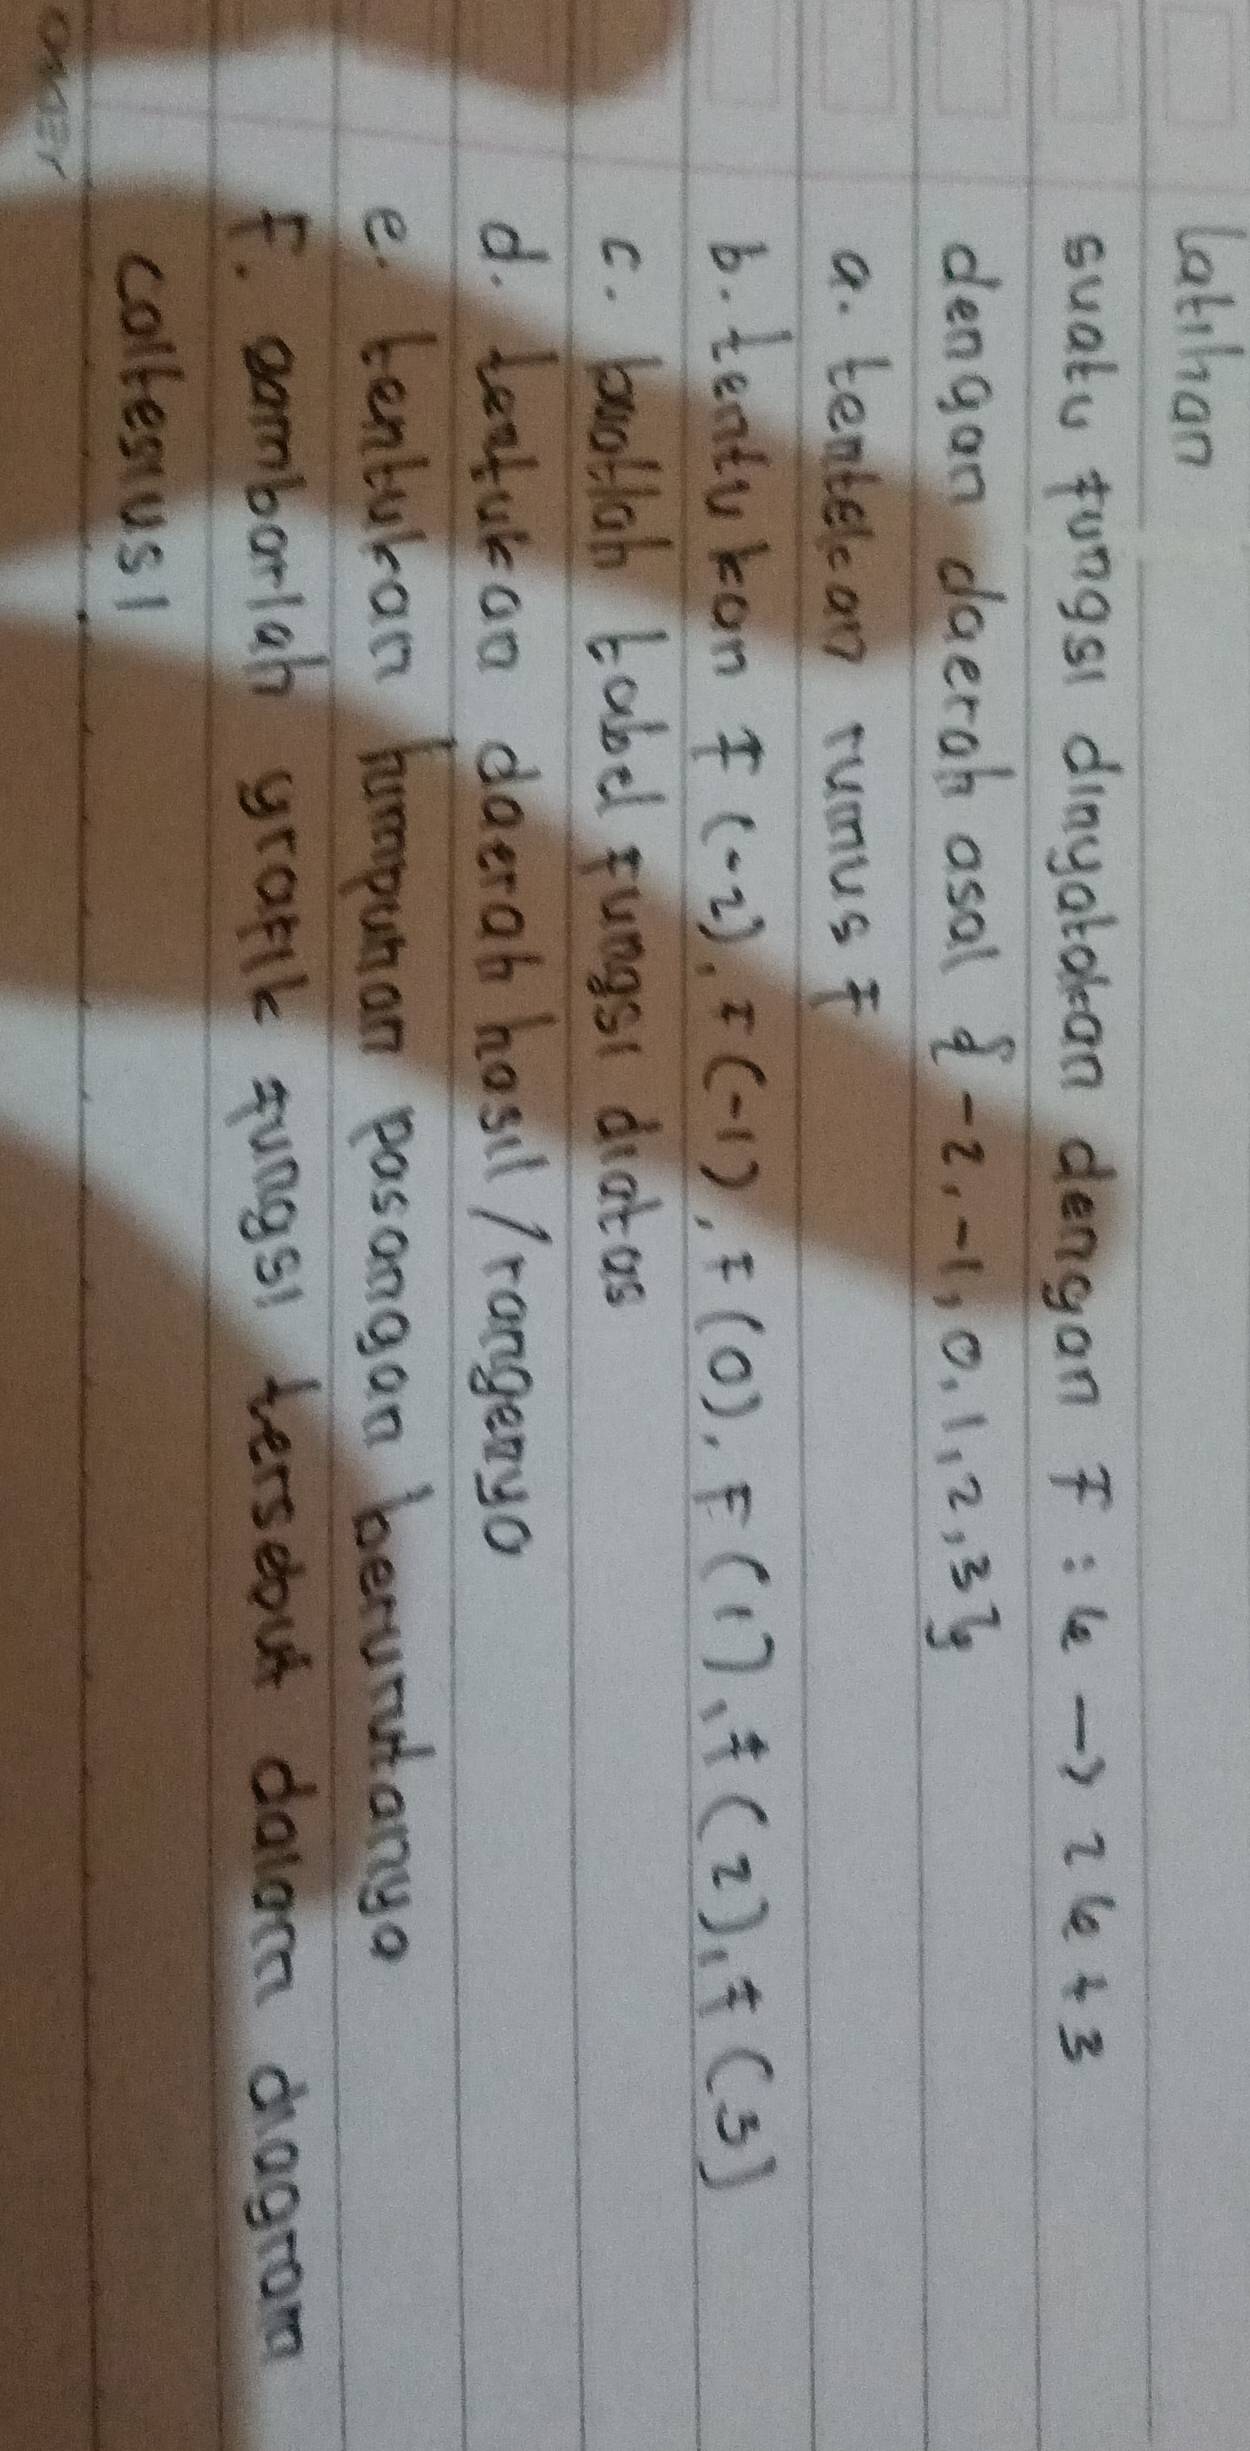 Latihan
suatu fungsi dinyatakan dengan F : k → 2k + 3
dengan daerah asal { -2, -1, 0, 1, 2, 3}
a. tentukan rumus F
b. tentukan F (-2), F (-1), F (0), F (1), F (2), F (3)
c. buatlah tabel fungsi diatas
d. tentukan daerah hasil / rangenya
e. tentukan himpunan pasangan berurutannya
F. gambarlah grafik fungsi tersebut dalam diagram
caltesius!